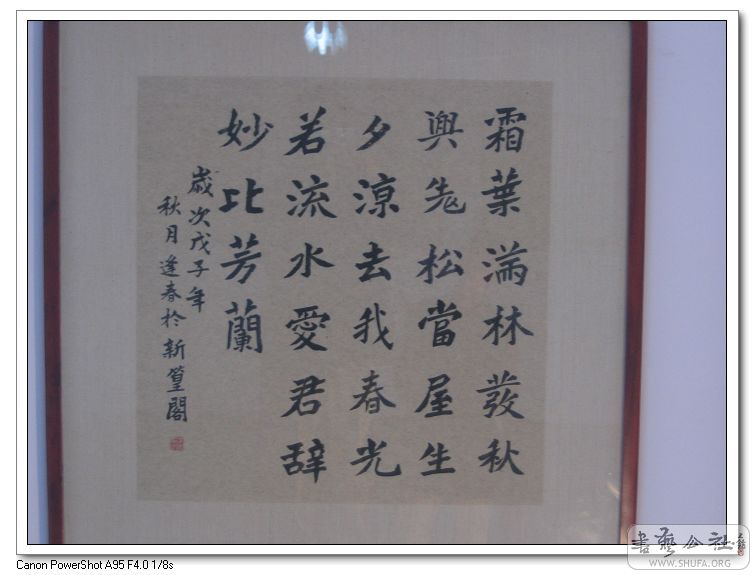 霜葉滿林發秋
興喬松當屋生
夕涼去我春光
若流水愛君辞
妙比芳蘭
歲次戊子年
秋月逢春於新篁閣
書藝公社
WWW.SHUFA.ORG
Canon PowerShot A95 F4.0 1/8s